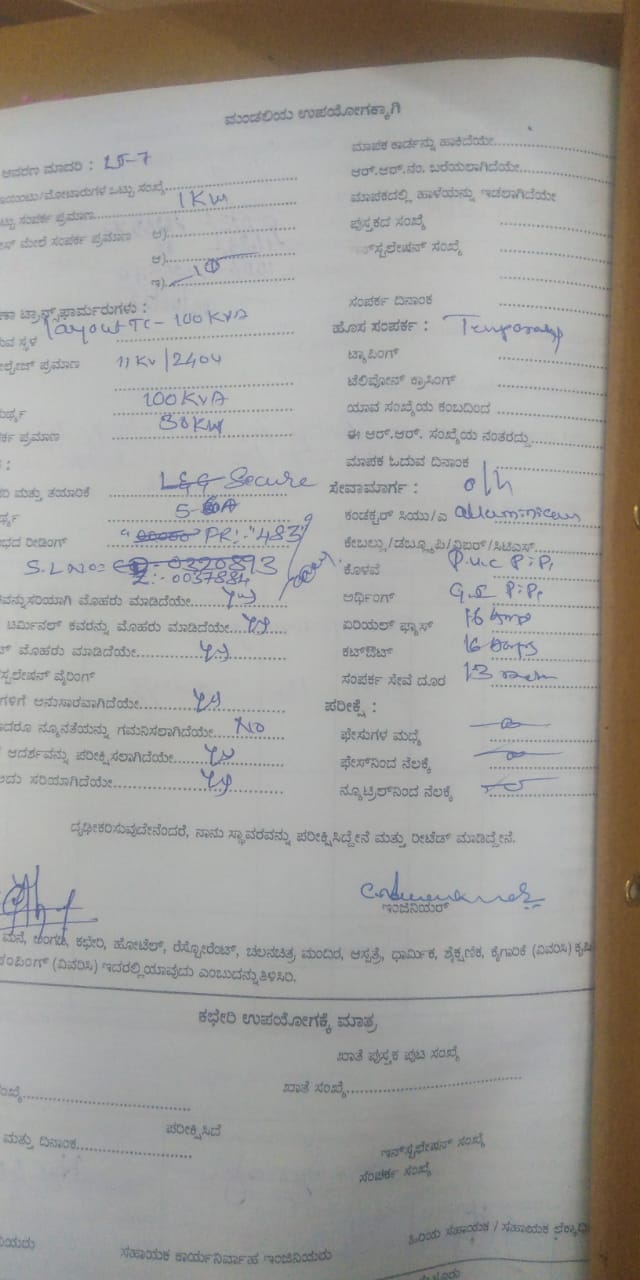 ಮಂಡಲಿಯ ಉಪಯೋಗಕ್ಕಾಗಿ
ಆವರಣ ಮಾದರಿ : LT-7
ಾಯಿಂಟು/ಮೋಟಾರುಗಳ ಒಟ್ಟು ಸಂಖ್ಯೆ
ಟ್ಟು ಸಂಪರ್ಕ ಪ್ರಮಾಣ 1KW
ಮೇಲೆ ಸಂಪರ್ಕ ಪ್ರಮಾಣ ಅ)
ಆ)
ಇ) 1Φ
ಟ್ರಾನ್ಸ್‌ಫಾರ್ಮರುಗಳು :
ಸ್ಥಳ Layout TC - 100KVA
ಪ್ರಮಾಣ 11KV/240V
100KVA
ಪ್ರಮಾಣ 30KW
ಮತ್ತು ತಯಾರಿಕೆ L&G Secure
ರೀಡಿಂಗ್ PR:-"483"
S.L No= 0320893
0037884
ವನ್ನುಸರಿಯಾಗಿ ಮೊಹರು ಮಾಡಿದೆಯೇ Yes
ಟರ್ಮಿನಲ್ ಕವರನ್ನು ಮೊಹರು ಮಾಡಿದೆಯೇ Yes
ಮೊಹರು ಮಾಡಿದೆಯೇ Yes
ಸ್ಟಲೇಷನ್ ವೈರಿಂಗ್
ಗಳಿಗೆ ಅನುಸಾರವಾಗಿದೆಯೇ Yes
ಾದರೂ ನ್ಯೂನತೆಯನ್ನು ಗಮನಿಸಲಾಗಿದೆಯೇ No
ಆದರ್ಶವನ್ನು ಪರೀಕ್ಷಿಸಲಾಗಿದೆಯೇ Yes
ಅದು ಸರಿಯಾಗಿದೆಯೇ Yes
ಮಾಪಕ ಕಾರ್ಡನ್ನು ಹಾಕಿದೆಯೇ
ಆರ್.ಆರ್.ನಂ. ಬರೆಯಲಾಗಿದೆಯೇ
ಮಾಪಕದಲ್ಲಿ ಹಾಳೆಯನ್ನು ಇಡಲಾಗಿದೆಯೇ
ಪುಸ್ತಕದ ಸಂಖ್ಯೆ
ನ್‌ಸ್ಟಲೇಷನ್ ಸಂಖ್ಯೆ
ಸಂಪರ್ಕ ದಿನಾಂಕ
ಹೊಸ ಸಂಪರ್ಕ : Temporary
ಟ್ಯಾಪಿಂಗ್
ಟೆಲಿಫೋನ್ ಕ್ರಾಸಿಂಗ್
ಯಾವ ಸಂಖ್ಯೆಯ ಕಂಬದಿಂದ
ಈ ಆರ್.ಆರ್. ಸಂಖ್ಯೆಯ ನಂತರದ್ದು
ಮಾಪಕ ಓದುವ ದಿನಾಂಕ
ಸೇವಾಮಾರ್ಗ : o/h
ಕಂಡಕ್ಟರ್ ಸಿಯು/ಎ alluminieum
ಕೇಬಲ್ಲು/ಡಬ್ಲ್ಯೂಪಿ/ವಿಐಆರ್/ಸಿಟಿಎಸ್
ಕೊಳವೆ P.u.c PiPe
ಅರ್ಥಿಂಗ್ G.I PiPe
ಏರಿಯಲ್ ಫ್ಯೂಸ್ 16 Amp
ಕಟ್‌ಔಟ್ 16 Amps
ಸಂಪರ್ಕ ಸೇವೆ ದೂರ 13
ಪರೀಕ್ಷೆ :
ಫೇಸುಗಳ ಮಧ್ಯೆ
ಫೇಸ್‌ನಿಂದ ನೆಲಕ್ಕೆ
ನ್ಯೂಟ್ರಲ್‌ನಿಂದ ನೆಲಕ್ಕೆ
ದೃಢೀಕರಿಸುವುದೇನೆಂದರೆ, ನಾನು ಸ್ಥಾವರವನ್ನು ಪರೀಕ್ಷಿಸಿದ್ದೇನೆ ಮತ್ತು ರೀಟೆಡ್ ಮಾಡಿದ್ದೇನೆ.
ಇಂಜಿನಿಯರ್
ಮನೆ, ಅಂಗಡಿ, ಕಛೇರಿ, ಹೋಟೆಲ್, ರೆಸ್ಟೋರೆಂಟ್, ಚಲನಚಿತ್ರ, ಮಂದಿರ, ಆಸ್ಪತ್ರೆ, ಧಾರ್ಮಿಕ, ಶೈಕ್ಷಣಿಕ, ಕೈಗಾರಿಕೆ (ವಿವರಿಸಿ) ಕೃಷಿ
ಪಂಪಿಂಗ್ (ವಿವರಿಸಿ) ಇದರಲ್ಲಿಯಾವುದು ಎಂಬುದನ್ನು ತಿಳಿಸಿರಿ.
ಕಛೇರಿ ಉಪಯೋಗಕ್ಕೆ ಮಾತ್ರ
ಖಾತೆ ಪುಸ್ತಕ ಪುಟ ಸಂಖ್ಯೆ
ಖಾತೆ ಸಂಖ್ಯೆ
ಪರೀಕ್ಷಿಸಿದೆ
ಮತ್ತು ದಿನಾಂಕ
ಇನ್‌ಸ್ಟಲೇಷನ್ ಸಂಖ್ಯೆ
ಸಂಪರ್ಕ ಸಂಖ್ಯೆ
ನಿಯರು ಸಹಾಯಕ ಕಾರ್ಯನಿರ್ವಾಹ ಇಂಜಿನಿಯರು ಹಿರಿಯ ಸಹಾಯಕ / ಸಹಾಯಕ